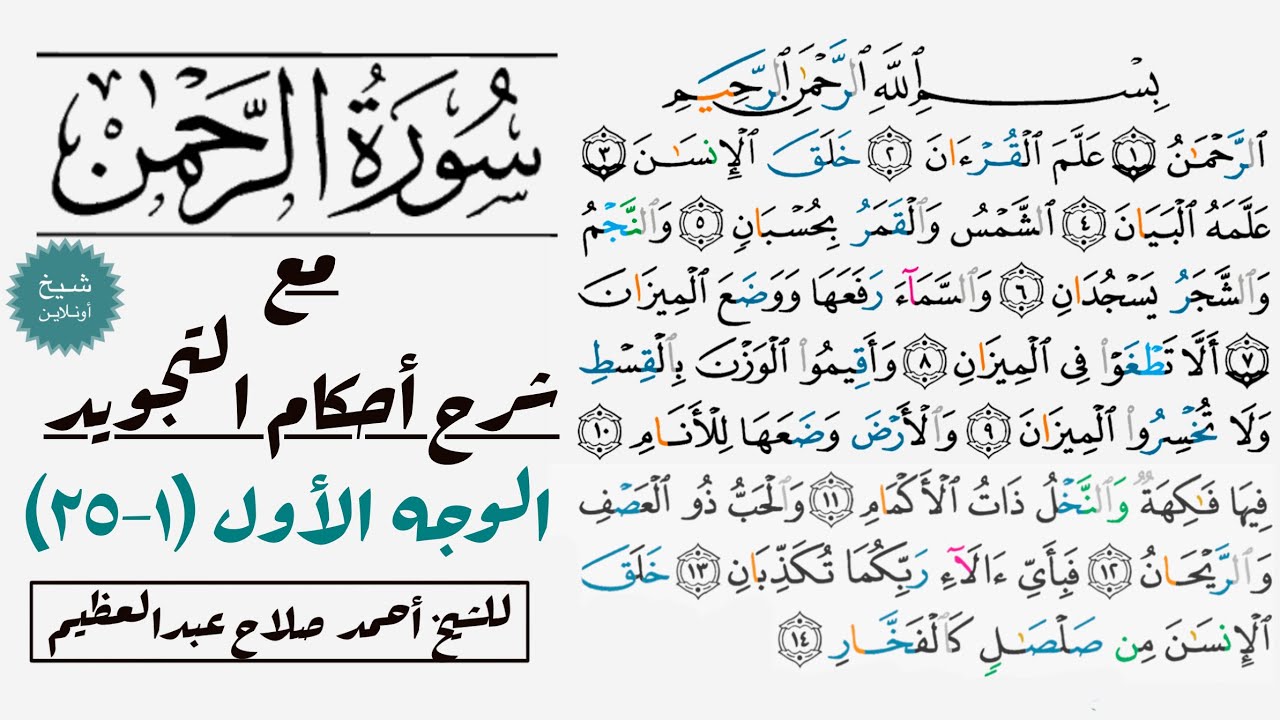 سُورَةُ الرَّحْمَٰن
مع
شرح أحكام التجويد
الوجه الأول (١-٢٥)
للشيخ أحمد صلاح عبدالعظيم
شيخ
أونلاين
بِسْمِ ٱللَّهِ ٱلرَّحْمَٰنِ ٱلرَّحِيمِ
ٱلرَّحْمَٰنُ ١ عَلَّمَ ٱلْقُرْءَانَ ٢ خَلَقَ ٱلْإِنسَٰنَ ٣
عَلَّمَهُ ٱلْبَيَانَ ٤ ٱلشَّمْسُ وَٱلْقَمَرُ بِحُسْبَانٍ ٥ وَٱلنَّجْمُ
وَٱلشَّجَرُ يَسْجُدَانِ ٦ وَٱلسَّمَآءَ رَفَعَهَا وَوَضَعَ ٱلْمِيزَانَ
٧ أَلَّا تَطْغَوْا۟ فِى ٱلْمِيزَانِ ٨ وَأَقِيمُوا۟ ٱلْوَزْنَ بِٱلْقِسْطِ
وَلَا تُخْسِرُوا۟ ٱلْمِيزَانَ ٩ وَٱلْأَرْضَ وَضَعَهَا لِلْأَنَامِ ١٠
فِيهَا فَٰكِهَةٌ وَٱلنَّخْلُ ذَاتُ ٱلْأَكْمَامِ ١١ وَٱلْحَبُّ ذُو ٱلْعَصْفِ
وَٱلرَّيْحَانُ ١٢ فَبِأَىِّ ءَالَآءِ رَبِّكُمَا تُكَذِّبَانِ ١٣ خَلَقَ
ٱلْإِنسَٰنَ مِن صَلْصَٰلٍ كَٱلْفَخَّارِ ١٤